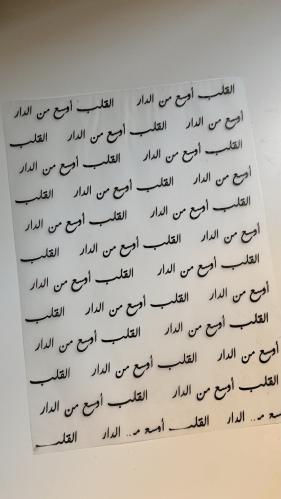 القلب أوسع من الدار القلب أوسع من الدار
أوسع من الدار القلب أوسع من الدار القلب
القلب أوسع من الدار القلب أوسع من الدار
أوسع من الدار القلب أوسع من الدار القلب
القلب أوسع من الدار القلب أوسع من الدار
أوسع من الدار القلب أوسع من الدار القلب
القلب أوسع من الدار القلب أوسع من الدار
أوسع من الدار القلب أوسع من الدار القلب
القلب أوسع من الدار القلب أوسع من الدار
أوسع من الدار القلب أوسع من الدار القلب
القلب أوسع من الدار القلب أوسع من الدار
من الدار القلب أوسع من الدار القلب